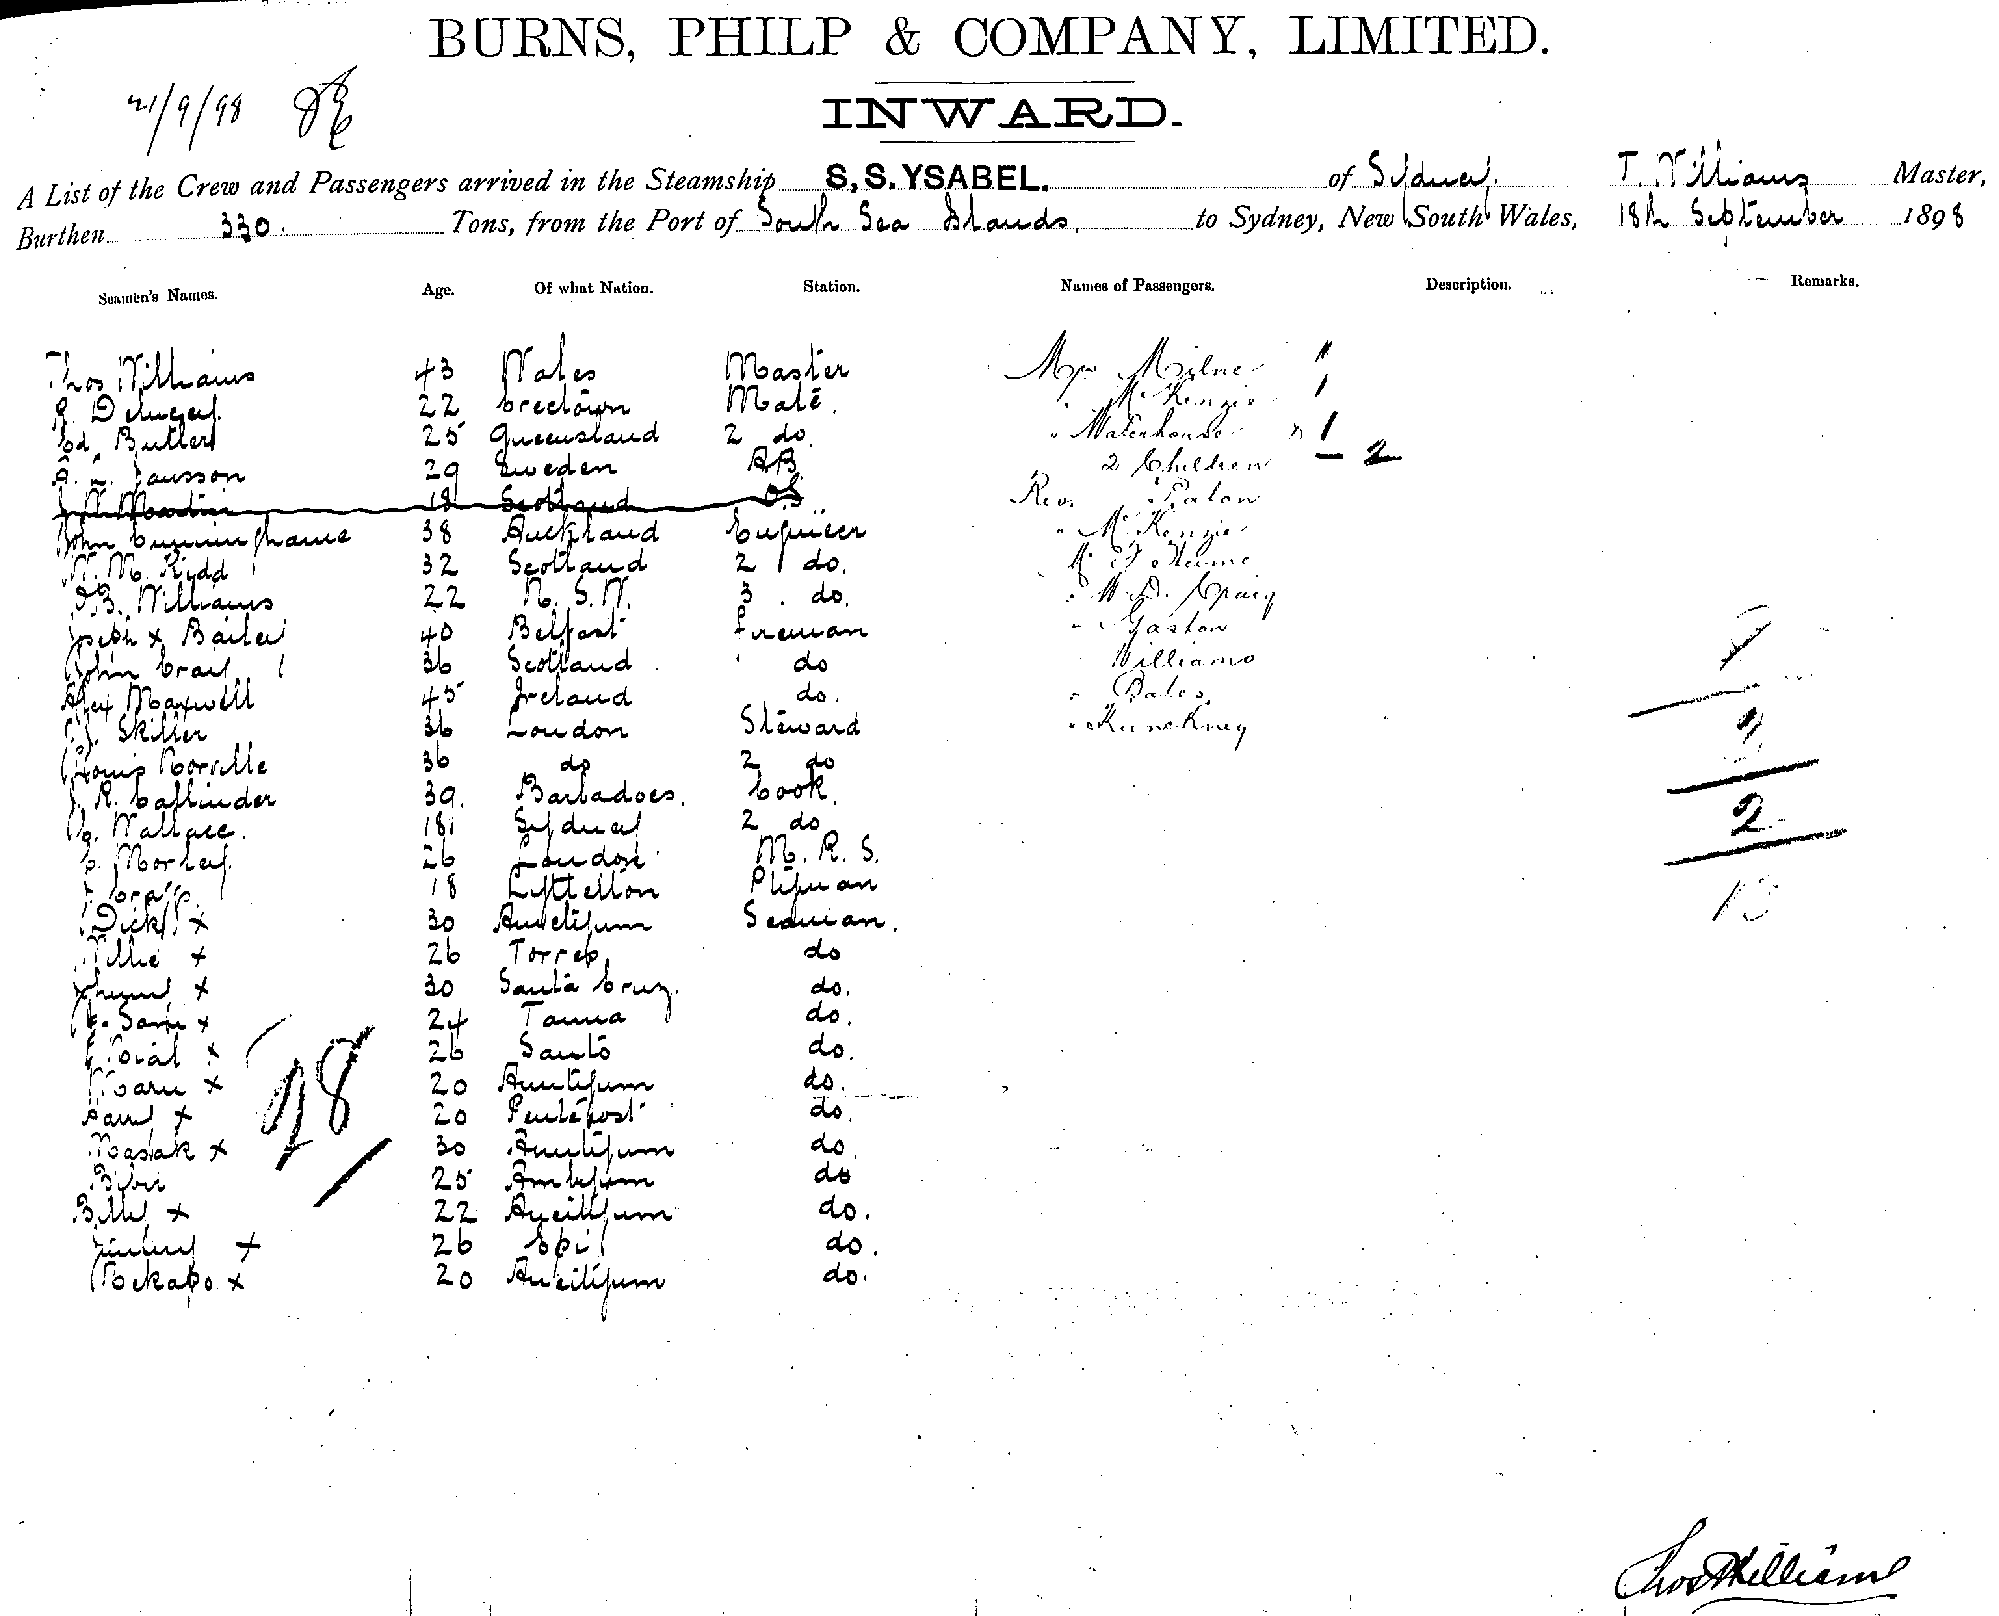 BURNS, PHILP & COMPANY, LIMITED.
21/9/98
INWARD.
A List of the Crew and Passengers arrived in the Steamship S.S. YSABEL. of Sydney. T. Williams Master,
Burthen 330. Tons, from the Port of South Sea Islands. to Sydney, New South Wales, 18th September 1898
Seamen's Names. Age. Of what Nation. Station. Names of Passengers. Description. Remarks.
Thos Williams 43 Wales Master Milne
22 Creetown Mate. McKenzie
Ed. Butler 25 Queensland 2 do. Waterhouse 1
29 Sweden AB 2 Children 2
Martin 18 Scotland OS Rev. Paton
John Cunninghame 38 Auckland Engineer McKenzie
W. M. Kidd 32 Scotland 2 do.
Williams 22 N. S. W. 3 do. Craig
Joseph x Bailey 40 Belfast fireman Gaston
John Gray 36 Scotland do Williams
Alex Maxwell 45 Ireland do. Bates
Skiller 36 London Steward
Louis Norville 36 do 2 do
R. Callinder 39. Barbadoes. Cook. 2
Wallace. 18 Sydney 2 do
C. Morley. 26 London M. R. S.
18 Lyttelton
Dick x 30 Aneityum Seaman.
Willie x 26 Torres do
x 30 Santa Cruz. do.
Sam x 24 Tanna do.
x 26 Santo do.
x 20 Aneityum do.
x 20 Pentecost do.
x 30 Aneityum do
25 do
Billy x 22 Aneityum do.
Jimmy x 26 Epi do.
x 20 Aneityum do.
28
Thos Williams